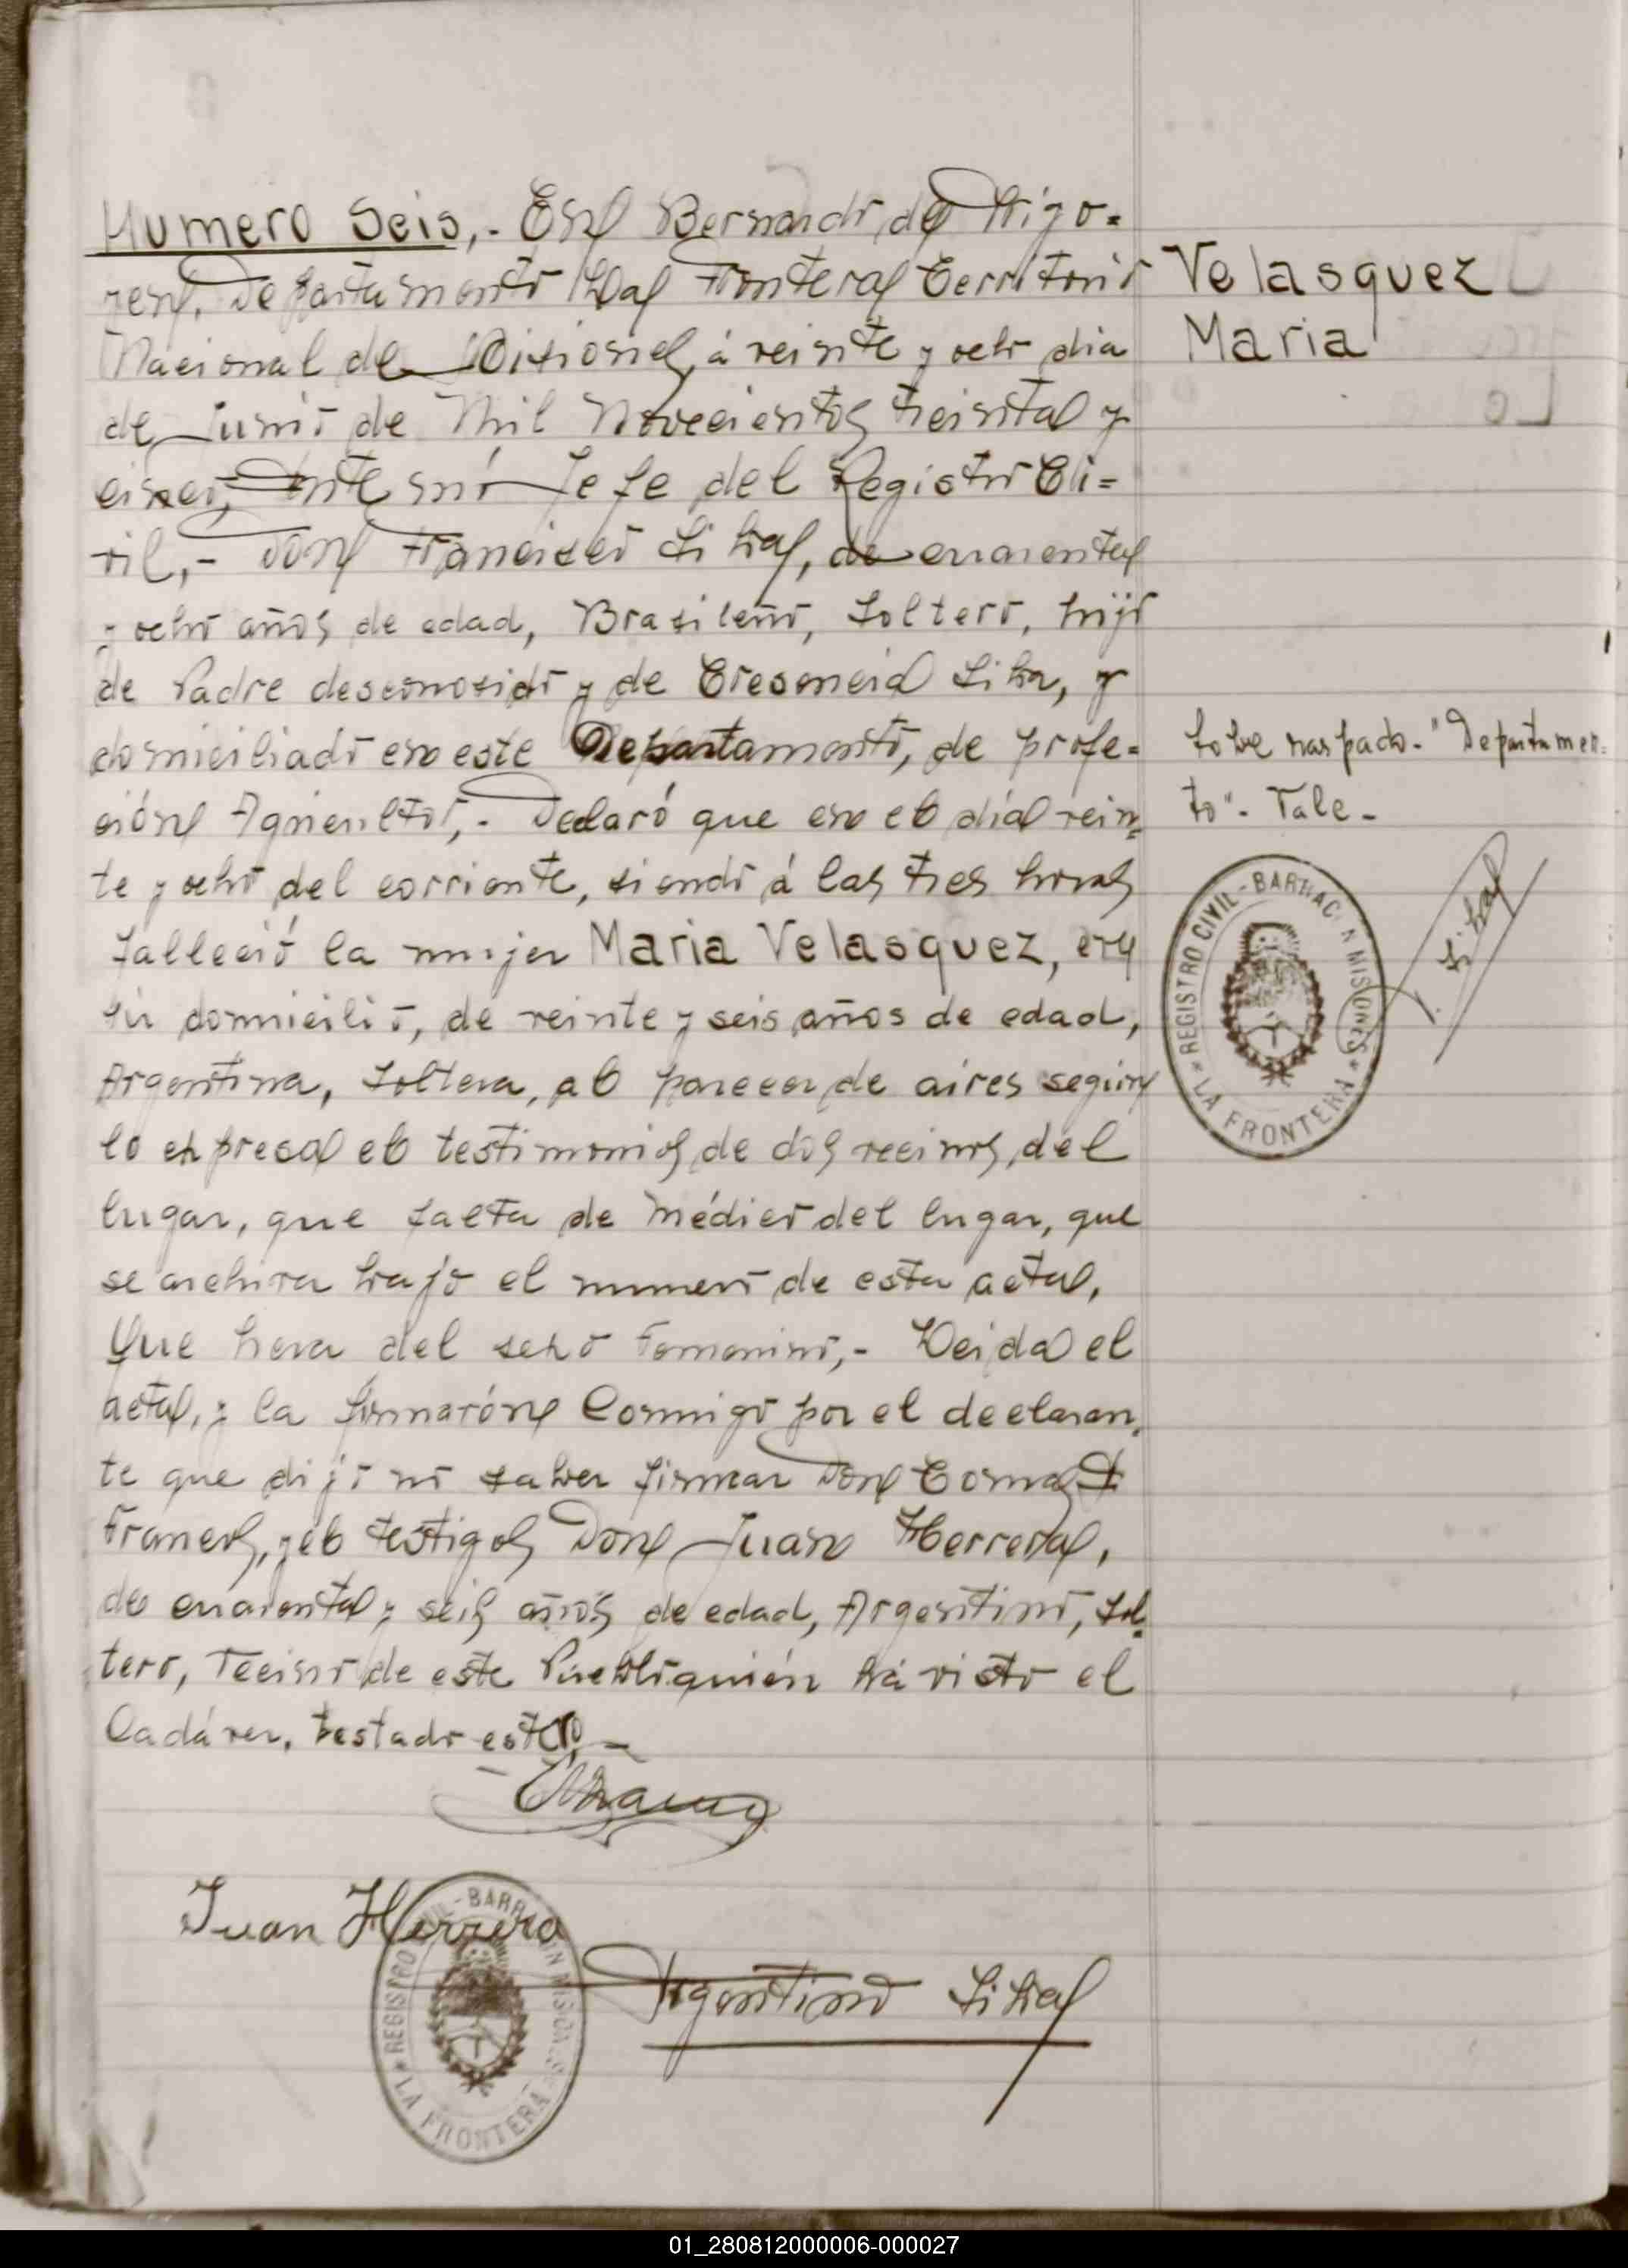 Numero Seis,.- En Bernardo, de Irigo=
yen, Departamento La Frontera Territorio
Nacional de Misiones, á veinte y ocho dia
de Junio de Mil Novecientos treinta y
cinco, Ante mí Jefe del Registro Ci=
vil,.- Don Francisco Silva, de cuarenta
y ocho años de edad, Brasileño, Soltero, hijo
de Padre desconosido y de Cresencia Silva, y
domiciliado en este Departamento, de profe=
ción Agricultor,.- Declaró que en el día vein=
te y ocho del corriente, siendo á las tres horas
falleció la mujer Maria Velasquez, en
su domicilio, de veinte y seis años de edad,
Argentina, Soltera, al parecer de aires según
lo expresa el testimonios de dos vecinos, del
lugar, que falta de Médico del lugar, que
se archiva bajo el numero de esta acta,
Que hera del sexo Femenino,.- Leida el
acta, y la firmarón Conmigo por el declaran=
te que dijo no saber firmar Don Comas A
Franco, y el testigos Don Juan Herrera,
de cuarenta y seis años de edad, Argentino, Sol=
tero, Vecino de este Pueblo quién há visto el
Cadáver, testado este,-
Juan Herrera
Argentino Silva
REGISTRO CIVIL - BARRACON MISIONES
LA FRONTERA
Velasquez
Maria
Sobre raspado.- "Departamen=
to".- Vale-
REGISTRO CIVIL - BARRACON MISIONES
LA FRONTERA
A. Silva
01_280812000006-000027